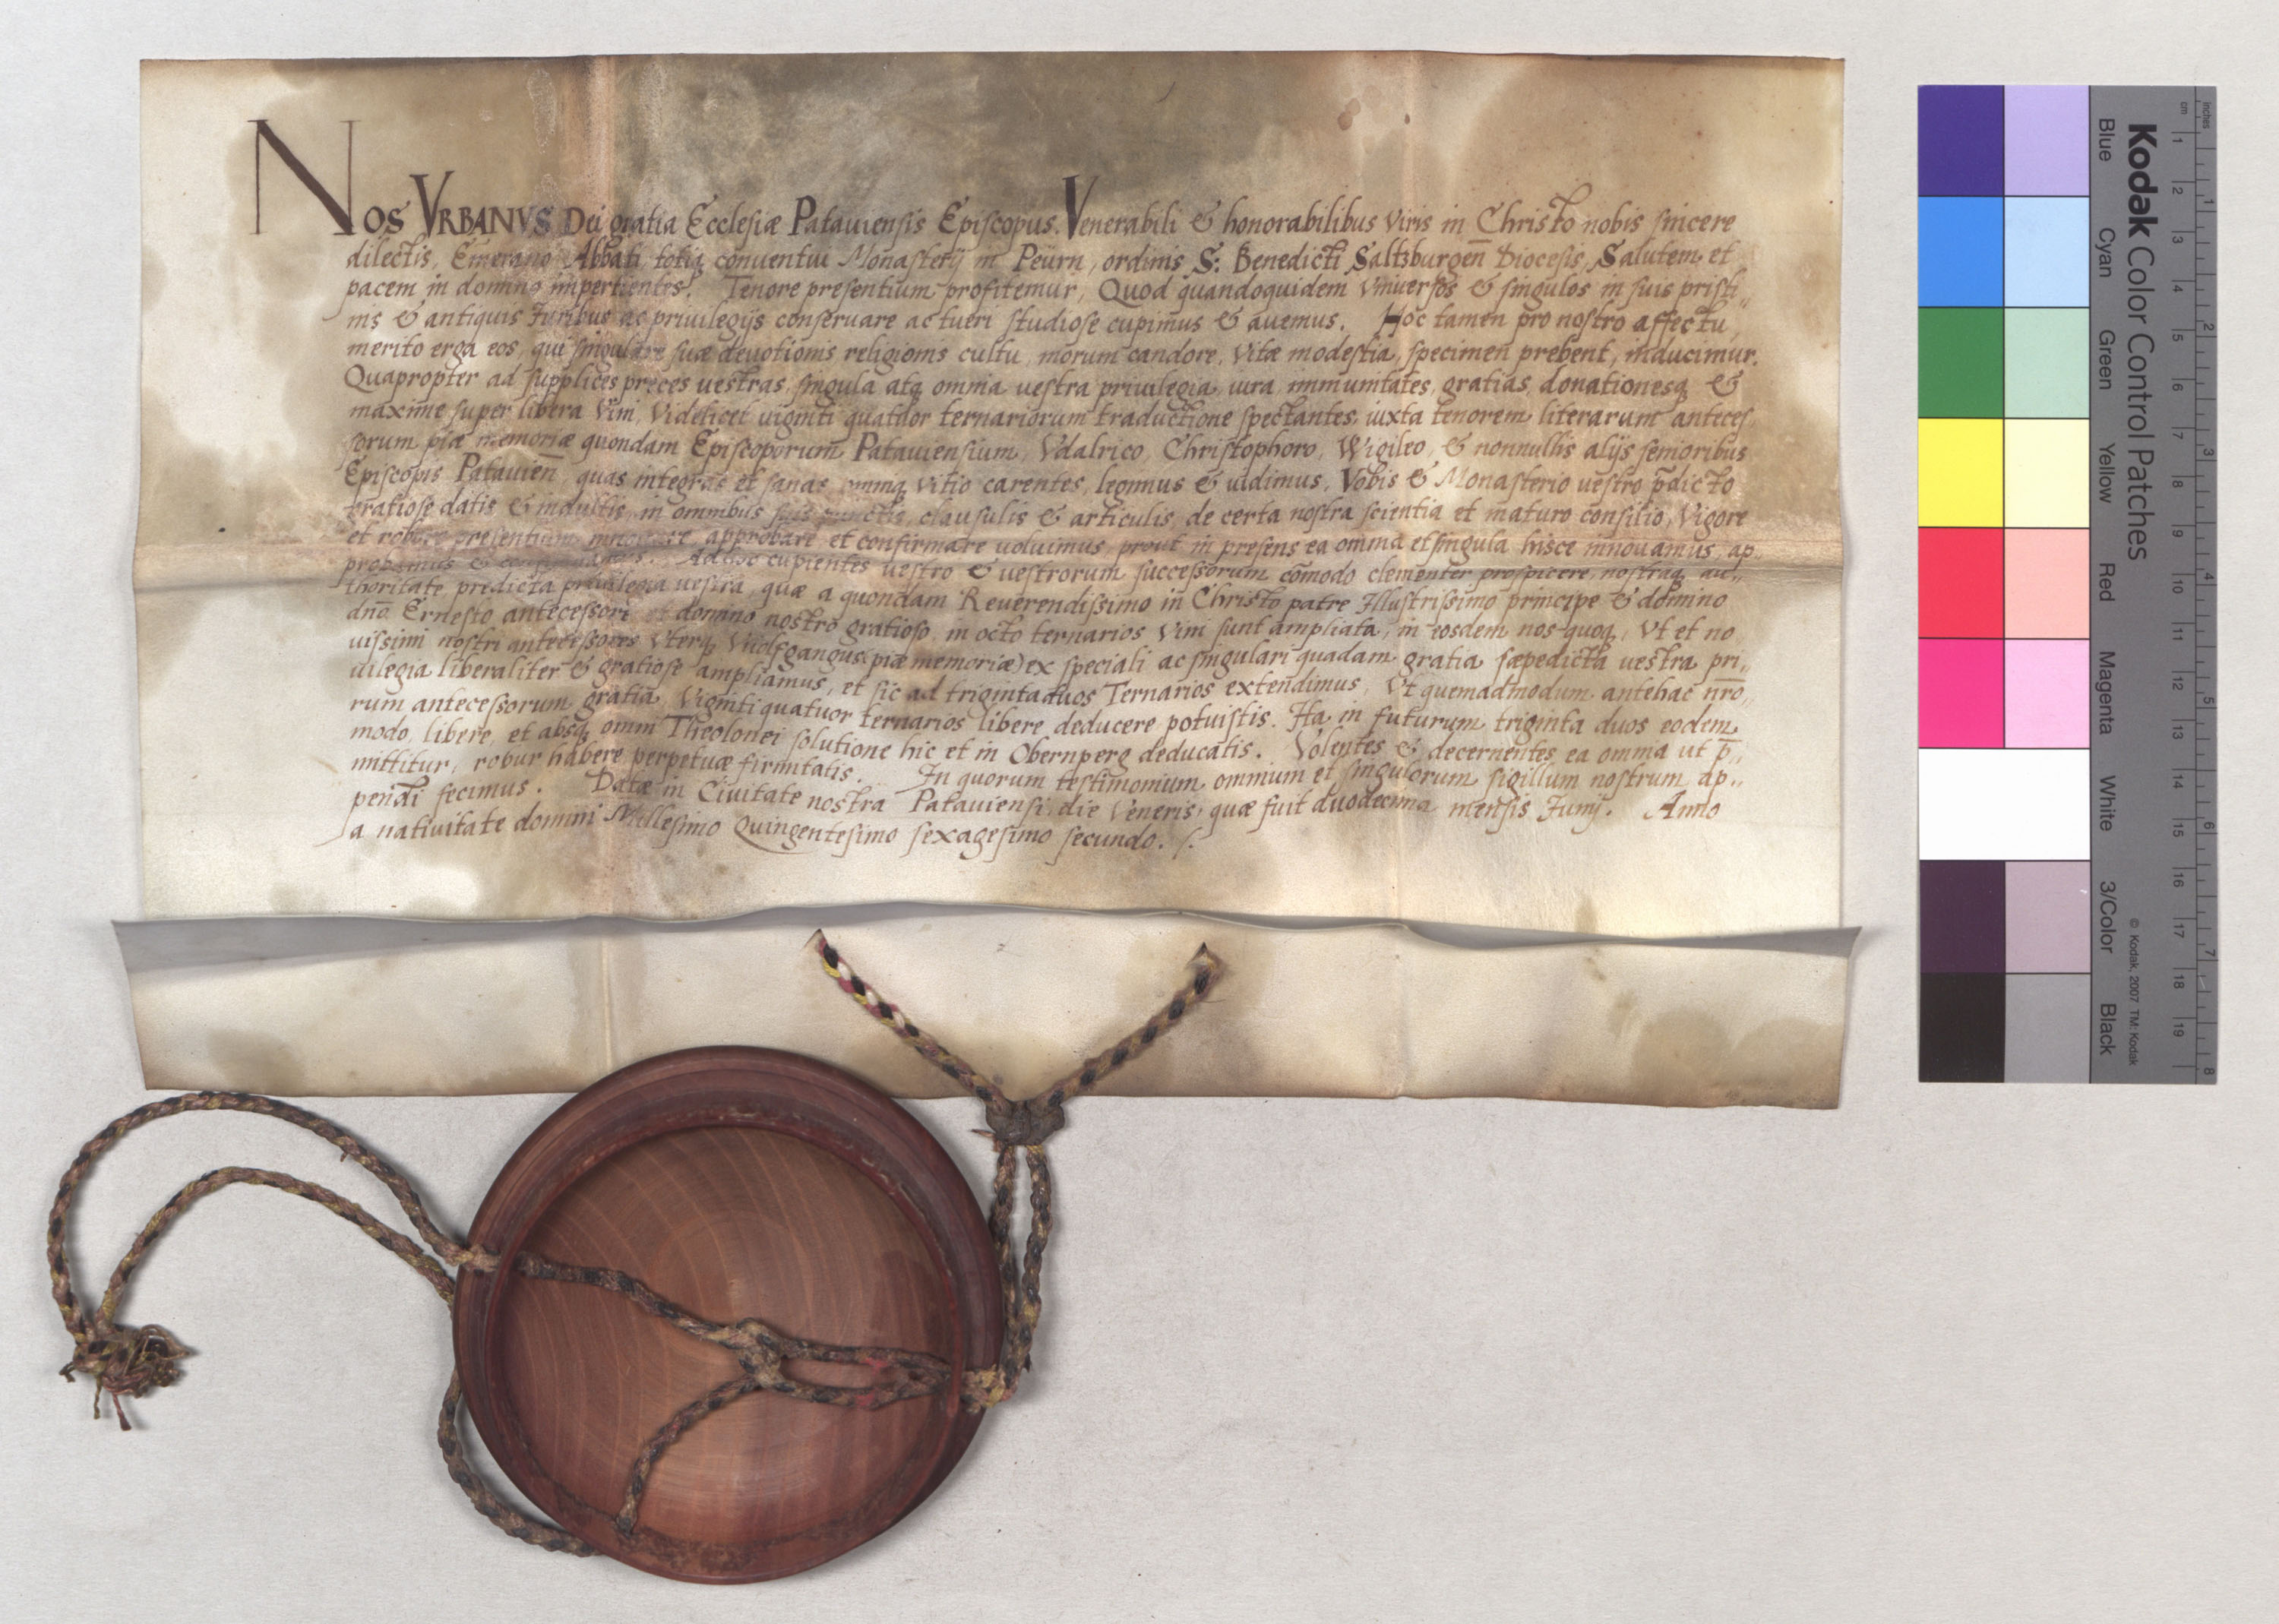 Nos Vrbanvs Dei gratia Ecclesiæ Patauiensis Episcopus. Venerabili & honorabilibus viris in Christo nobis sincere
dilectis, Emerano Abbati totiq conuentui Monasterij in Peürn, ordinis S: Benedicti Saltzburgen̄ Diocesis, Salutem et
pacem in domino impertientes. Tenore presentium profitemur, Quod quandoquidem vniuersos & singulos in suis pristi„
nis & antiquis Juribus ac priuilegijs conseruare ac tueri studiose cupimus & auemus. Hoc tamen pro nostro affectu
merito erga eos, qui singulare suæ deuotionis religionis cultu, morum candore, vitæ modestia, specimen prebent, inducimur.
Quapropter ad supplices preces uestras, singula atq omnia uestra priuilegia, iura, immunitates, gratias, donationesq &
maxime super libera vini, videlicet uiginti quatuor ternariorum traductione spectantes, iuxta tenorem literarum anteces„
sorum piæ memoriæ quondam Episcoporum Patauiensium, Vdalrico, Christophoro, Wigileo, & nonnullis alijs senioribus
Episcopis Patauien̄, quas integras et sanas omniq vitio carentes, legimus & uidimus, Vobis & Monasterio uestro p̄dicto
gratiose datis & indultis, in omnibus suis punctis, clausulis & articulis, de certa nostra scientia et maturo consilio, Vigore
et robore presentium innouare approbare et confirmare uoluimus, prout in presens ea omnia et singula hisce innouamus, ap„
probamus & confirmamus. Adhoc cupientes uestro & uestrorum successorum cōmodo clementer prospicere, nostraq au„
thoritate, predicta priuilegia uestra, quæ a quondam Reuerendissimo in Christo patre Illustrissimo principe & domino
dn̄o Ernesto antecessore et domino nostro gratioso, in octo ternarios vini sunt ampliata, in eosdem nos quoq, Vt et no
uissimi nostri antecessores vterq Wolfgangus (piæ memoriæ) ex speciali ac singulari quadam gratia sæpedicta uestra pri„
uilegia liberaliter & gratiose ampliamus, et sic ad triginta duos Ternarios extendimus, Vt quemadmodum antehac nr̄o„
rum antecessorum gratia Viginti quatuor ternarios libere deducere potuistis. Ita in futurum triginta duos eodem
modo, libere, et absq omni Theolonei solutione hic et in Obernperg deducatis. Volentes & decernentes ea omnia ut p̄„
mittitur, robur habere perpetuæ firmitatis. In quorum testimonium omnium et singulorum sigillum nostrum ap„
pendi fecimus. Datæ in Ciuitate nostra Patauiensi, die Veneris, quæ fuit duodecima mensis Junij. Anno
a natiuitate domini Millesimo Quingentesimo sexagesimo secundo. /.
Kodak Color Control Patches
Blue Cyan Green Yellow Red Magenta White 3/Color Black
© Kodak, 2007 TM: Kodak
inches 1 2 3 4 5 6 7 8
cm 1 2 3 4 5 6 7 8 9 10 11 12 13 14 15 16 17 18 19